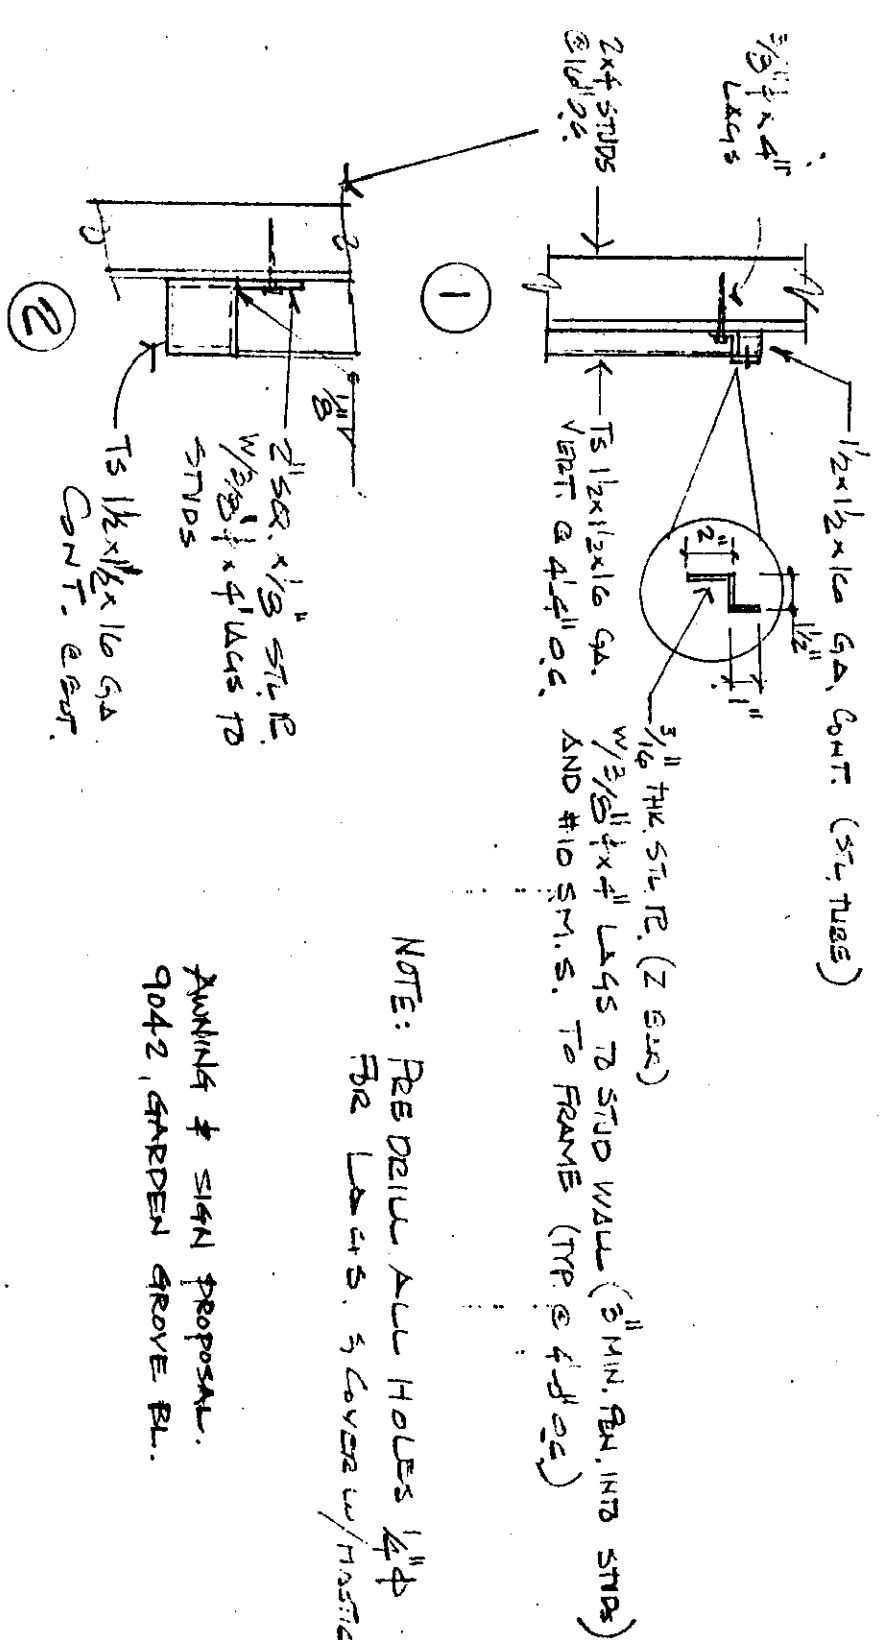 3/8"ϕ x 4"
LAGS
2x4 STUDS
@ 16" O.C.
1 1/2 x 1 1/2 x 16 GA. CONT. (STL. TUBE)
2"
1 1/2"
1"
TS 1 1/2 x 1 1/2 x 16 GA.
VERT. @ 4'-4" O.C.
3/16" THK. STL. PL. (Z BAR)
W/ 3/8"ϕ x 4" LAGS TO STUD WALL (3" MIN. PEN. INTO STUDS)
AND #10 S.M.S. TO FRAME (TYP. @ 4'-4" O.C.)
1
1/8"
2" SQ. x 1/8" STL. PL.
W/ 3/8"ϕ x 4" LAGS TO
STUDS
TS 1 1/2 x 1 1/2 x 16 GA
CONT. @
2
NOTE: PRE DRILL ALL HOLES 1/4"ϕ
FOR LAGS. & COVER W/ MASTIC
AWNING & SIGN PROPOSAL.
9042, GARDEN GROVE BL.